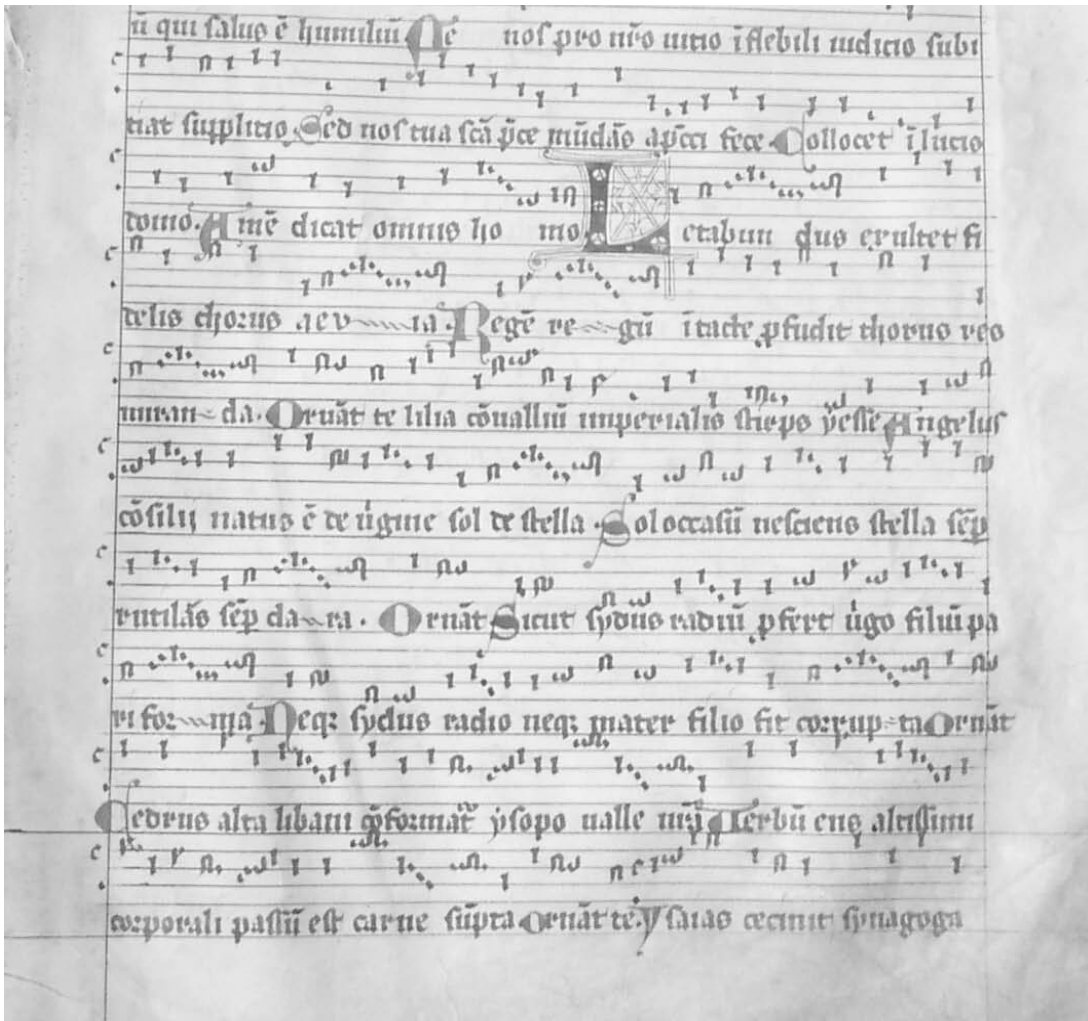 ū qui salus ē humiliū Ne nos pro nr̄o uicio ī flebili iudicio subi
ciat supplicio. Sed nos tua scā p̄ce mūdās a p̄cci fece Collocet ī lucis
domo. Amē dicat omnis ho mo. Letabun dus exultet fi
delis chorus aev~~~ia. Regē re~~gū ītacte ꝓfudit thorus res
miran~da. Ornāt te lilia cōualliū imperialis stirps yesse Angelus
cōsilij natus ē de ůgine sol de stella. Sol occasū nesciens stella sēp
rutilās sēp cla~ra. Ornāt Sicut sydus radiū ꝓfert ůgo filiū pa
ri for~mā. Neqꝫ sydus radio neqꝫ mater filio fit corrup~ta Ornāt
Cedrus alta libani ꝯformat᷑ ysopo ualle nr̄a Verbū ens altissimi
corporali passū est carne sūpta Ornāt te. ysaias cecinit synagoga